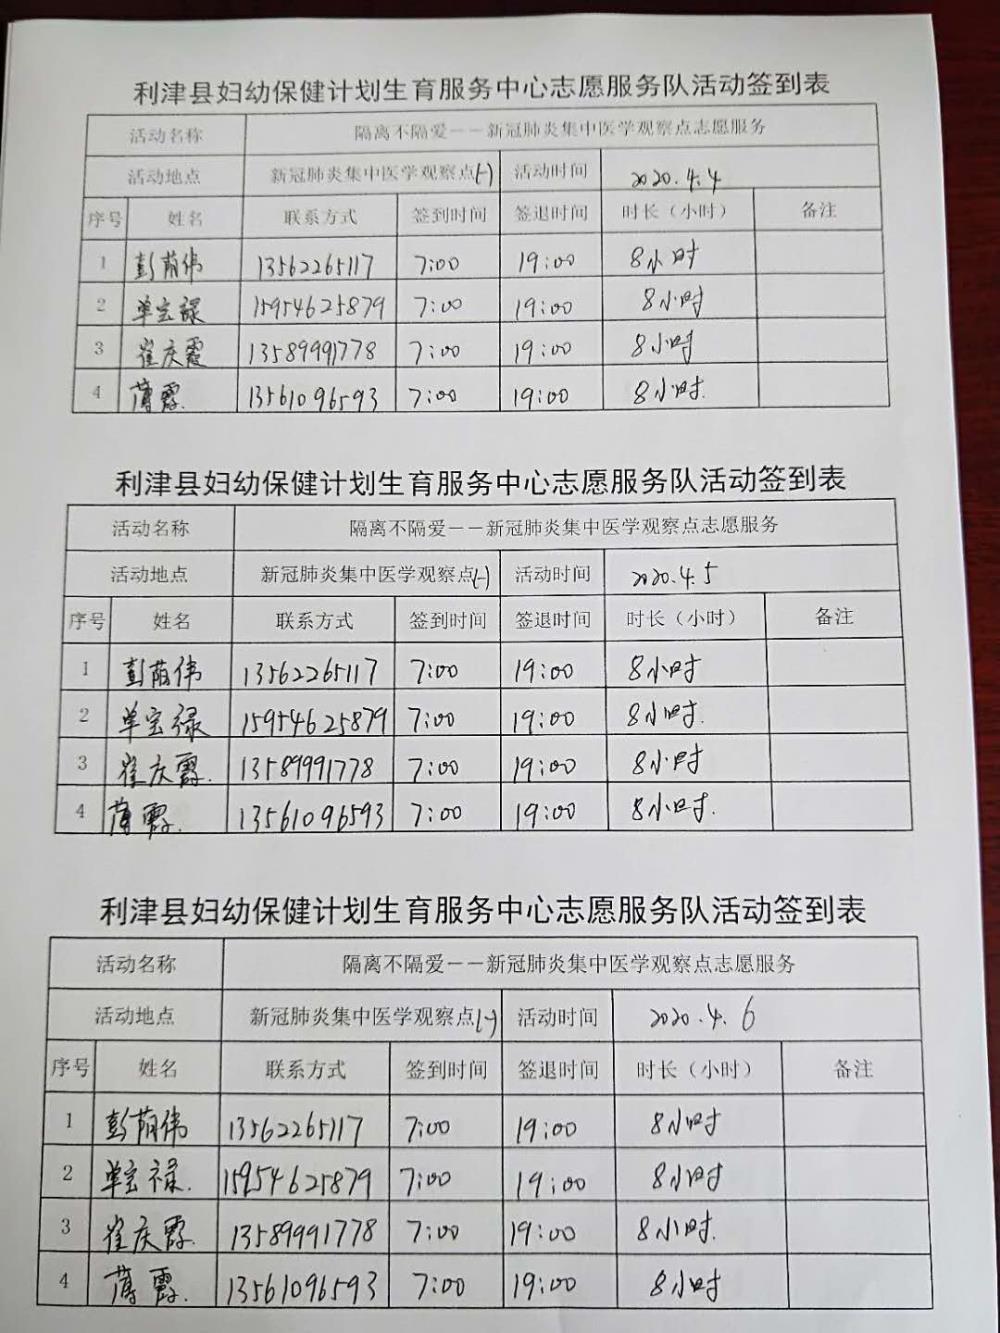 利津县妇幼保健计划生育服务中心志愿服务队活动签到表
活动名称 隔离不隔爱——新冠肺炎集中医学观察点志愿服务
活动地点 新冠肺炎集中医学观察点(一) 活动时间 2020.4.4
序号 姓名 联系方式 签到时间 签退时间 时长（小时） 备注
1 彭荫伟 13562265117 7:00 19:00 8小时
2 单宝禄 15954625879 7:00 19:00 8小时
3 崔庆霞 13589991778 7:00 19:00 8小时
4 薄霞. 13561096593 7:00 19:00 8小时.
利津县妇幼保健计划生育服务中心志愿服务队活动签到表
活动名称 隔离不隔爱——新冠肺炎集中医学观察点志愿服务
活动地点 新冠肺炎集中医学观察点(一) 活动时间 2020.4.5
序号 姓名 联系方式 签到时间 签退时间 时长（小时） 备注
1 彭荫伟 13562265117 7:00 19:00 8小时
2 单宝禄 15954625879 7:00 19:00 8小时.
3 崔庆霞. 13589991778 7:00 19:00 8小时
4 薄霞. 13561096593 7:00 19:00 8小时.
利津县妇幼保健计划生育服务中心志愿服务队活动签到表
活动名称 隔离不隔爱——新冠肺炎集中医学观察点志愿服务
活动地点 新冠肺炎集中医学观察点(一) 活动时间 2020.4.6
序号 姓名 联系方式 签到时间 签退时间 时长（小时） 备注
1 彭荫伟 13562265117 7:00 19:00 8小时
2 单宝禄. 15954625879 7:00 19:00 8小时
3 崔庆霞. 13589991778 7:00 19:00 8小时.
4 薄霞. 13561096593 7:00 19:00 8小时